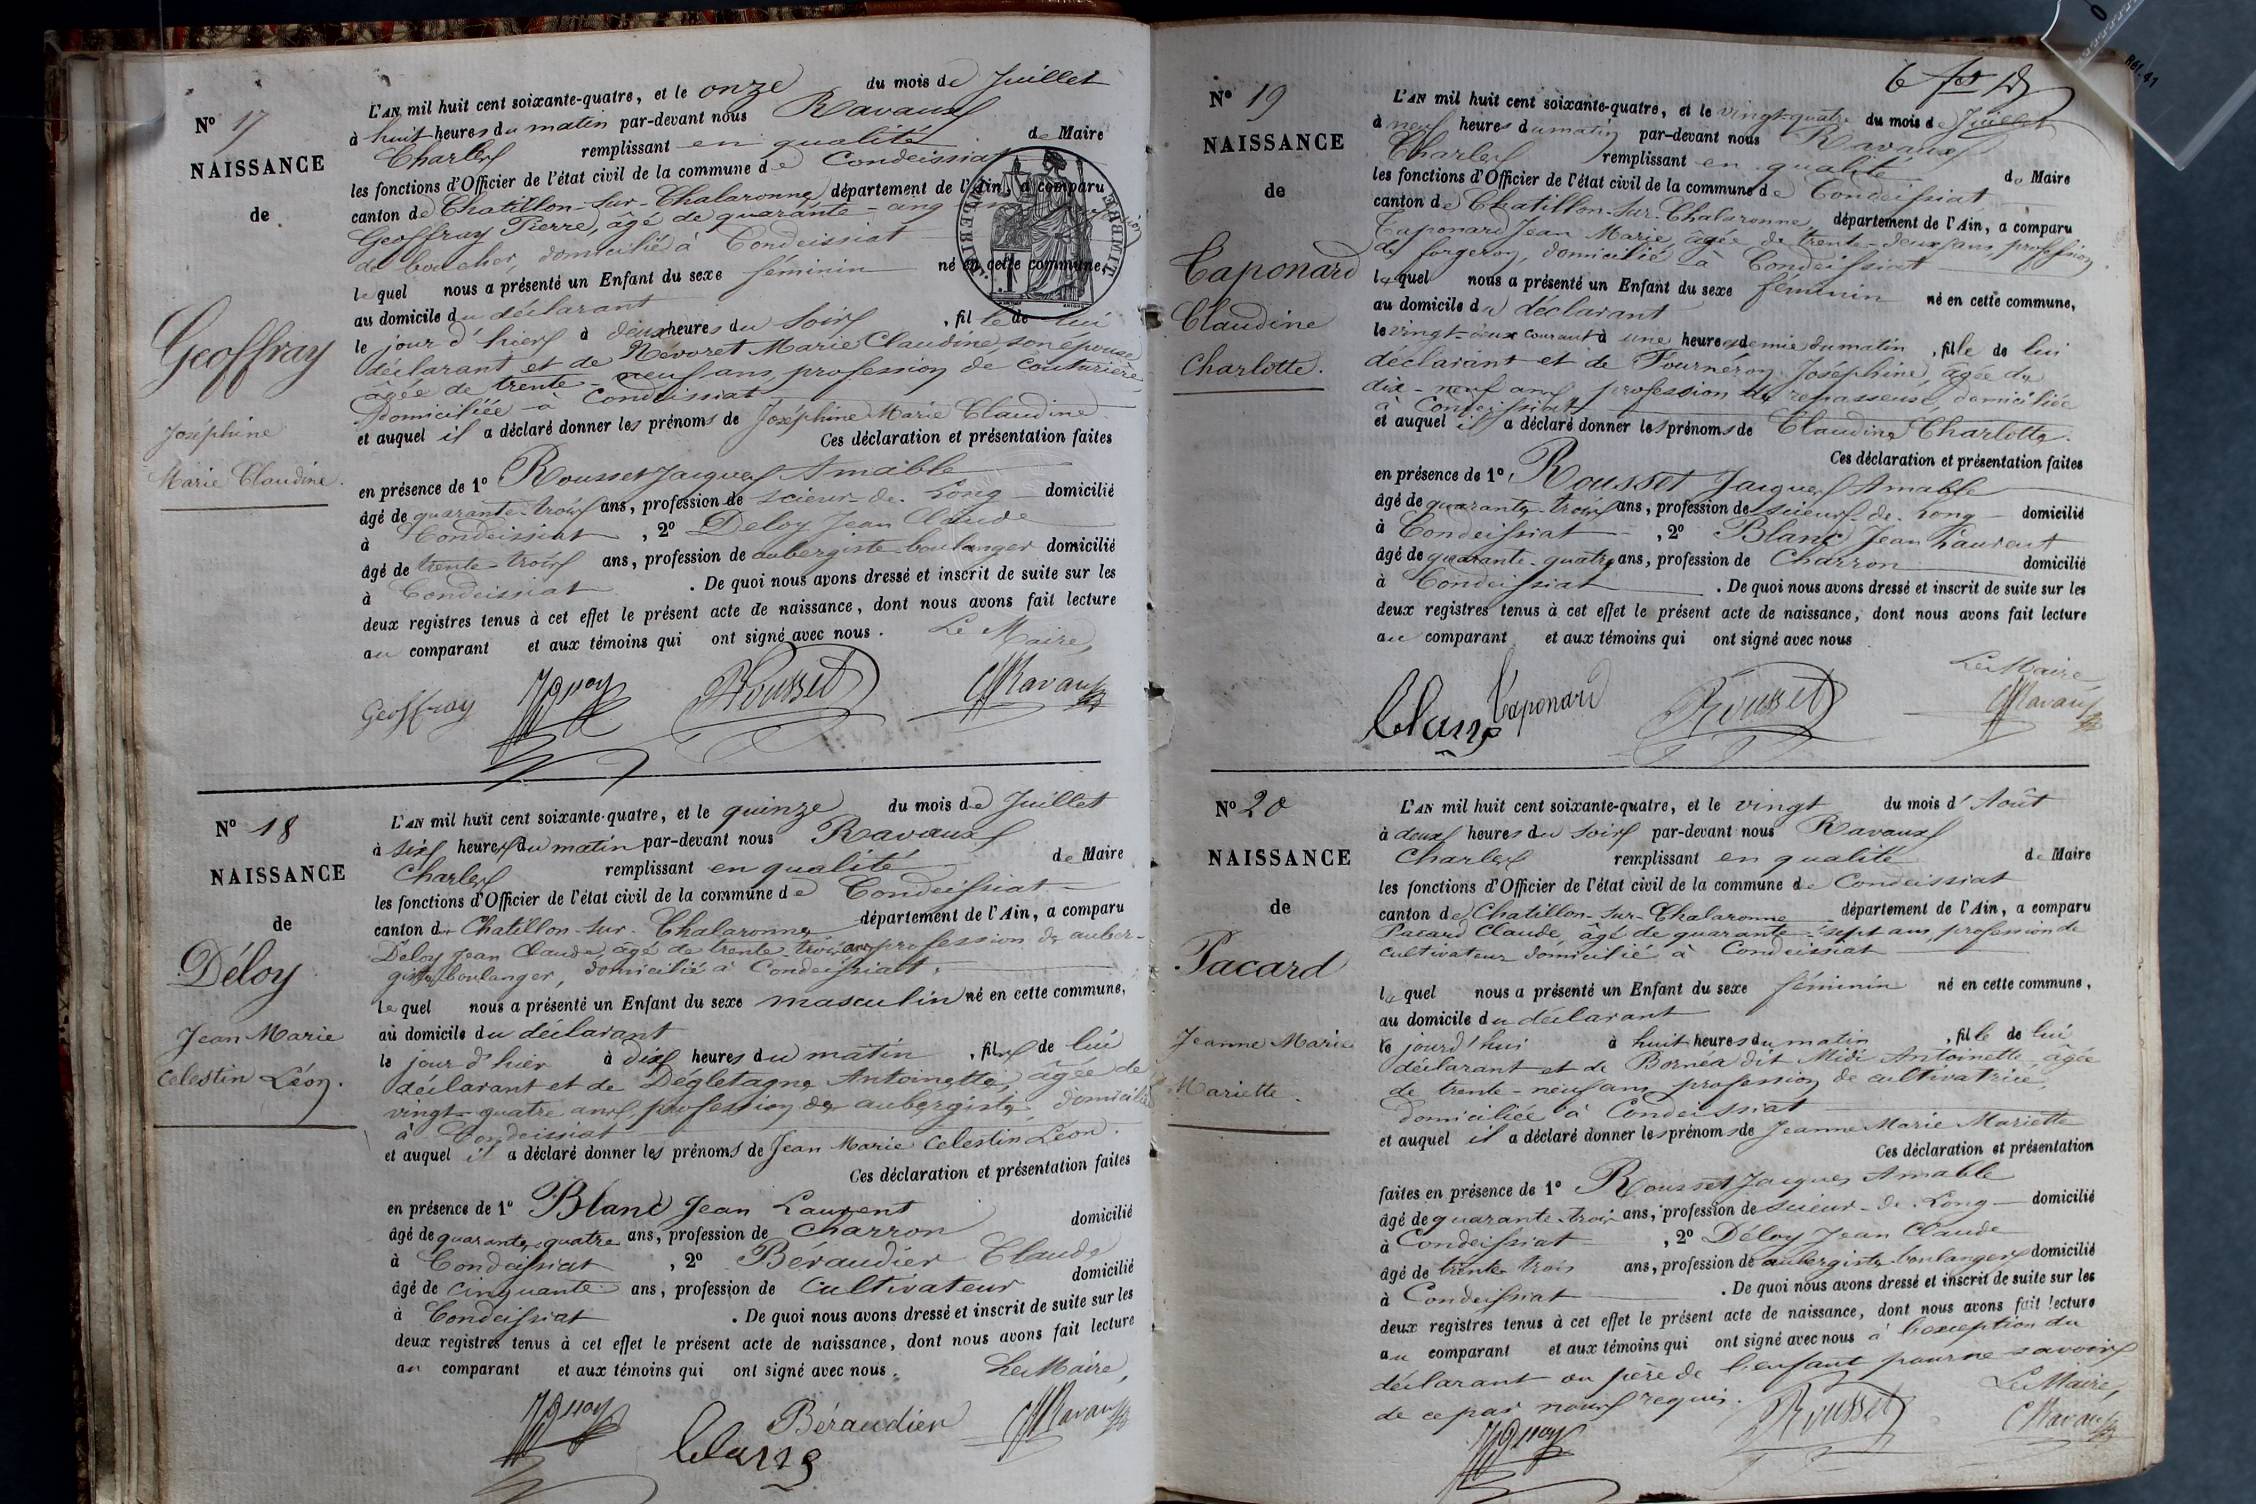 N° 17
NAISSANCE
de
Geoffray
Joséphine
Marie Claudine.
L'AN mil huit cent soixante-quatre, et le onze du mois de Juillet
à huit heures du matin par-devant nous Ravaux
Charles remplissant en qualité de Maire
les fonctions d'Officier de l'état civil de la commune de Condeissiat
canton de Chatillon-sur-Chalaronne département de l'Ain, a comparu
Geoffray Pierre, âgé de quarante-cinq
de boucher, domicilié à Condeissiat
lequel nous a présenté un Enfant du sexe féminin né en cette commune,
au domicile du déclarant
le jour d'hier à deux heures du soir, fille de lui
déclarant et de Nevoret Marie Claudine son épouse
âgée de trente-neuf ans profession de couturière
domiciliée à Condeissiat
et auquel il a déclaré donner les prénoms de Joséphine Marie Claudine
Ces déclaration et présentation faites
en présence de 1° Rousset Jacques Amable
âgé de quarante-trois ans, profession de scieur-de-Long domicilié
à Condeissiat, 2° Deloy Jean Claude
âgé de trente-trois ans, profession de aubergiste boulanger domicilié
à Condeissiat. De quoi nous avons dressé et inscrit de suite sur les
deux registres tenus à cet effet le présent acte de naissance, dont nous avons fait lecture
au comparant et aux témoins qui ont signé avec nous. Le Maire,
Geoffray Rousset Ravaux
N° 18
NAISSANCE
de
Déloy
Jean Marie
Celestin Léon.
L'AN mil huit cent soixante-quatre, et le quinze du mois de Juillet
à six heures du matin par-devant nous Ravaux
Charles remplissant en qualité de Maire
les fonctions d'Officier de l'état civil de la commune de Condeissiat
canton de Chatillon-sur-Chalaronne département de l'Ain, a comparu
Déloy Jean Claude, âgé de trente-trois ans profession de auber-
giste boulanger, domicilié à Condeissiat,
lequel nous a présenté un Enfant du sexe masculin né en cette commune,
au domicile du déclarant
le jour d'hier à dix heures du matin, fils de lui
déclarant et de Dégletagne Antoinette, âgée de
vingt-quatre ans, profession de aubergiste, domiciliée
à Condeissiat
et auquel il a déclaré donner les prénoms de Jean Marie Celestin Léon.
Ces déclaration et présentation faites
en présence de 1° Blanc Jean Laurent
âgé de quarante-quatre ans, profession de Charron domicilié
à Condeissiat, 2° Béraudier Claude
âgé de cinquante ans, profession de Cultivateur domicilié
à Condeissiat. De quoi nous avons dressé et inscrit de suite sur les
deux registres tenus à cet effet le présent acte de naissance, dont nous avons fait lecture
au comparant et aux témoins qui ont signé avec nous. Le Maire,
Blanc Béraudier Ravaux
N° 19
NAISSANCE
de
Taponard
Claudine
Charlotte.
L'AN mil huit cent soixante-quatre, et le vingt-quatre du mois de Juillet
à neuf heures du matin par-devant nous Ravaux
Charles remplissant en qualité de Maire
les fonctions d'Officier de l'état civil de la commune de Condeissiat
canton de Chatillon-sur-Chalaronne département de l'Ain, a comparu
Taponard Jean Marie, âgée de trente-deux ans, profession
de forgeron, domicilié à Condeissiat
lequel nous a présenté un Enfant du sexe féminin né en cette commune,
au domicile du déclarant
le vingt-deux courant à une heure et demie du matin, fille de lui
déclarant et de Fournéron Joséphine, âgée de
dix-neuf ans profession de repasseuse, domiciliée
à Condeissiat
et auquel il a déclaré donner les prénoms de Claudine Charlotte.
Ces déclaration et présentation faites
en présence de 1° Rousset Jacques Amable
âgé de quarante-trois ans, profession de scieur-de-Long domicilié
à Condeissiat, 2° Blanc Jean Laurent
âgé de quarante-quatre ans, profession de Charron domicilié
à Condeissiat. De quoi nous avons dressé et inscrit de suite sur les
deux registres tenus à cet effet le présent acte de naissance, dont nous avons fait lecture
au comparant et aux témoins qui ont signé avec nous
Le Maire,
Blanc Taponard Rousset Ravaux
N° 20
NAISSANCE
de
Pacard
Jeanne Marie
Mariette.
L'AN mil huit cent soixante-quatre, et le vingt du mois d'Août
à deux heures du soir par-devant nous Ravaux
Charles remplissant en qualité de Maire
les fonctions d'Officier de l'état civil de la commune de Condeissiat
canton de Chatillon-sur-Chalaronne département de l'Ain, a comparu
Pacard Claude, âgé de quarante-sept ans, profession de
cultivateur domicilié à Condeissiat
lequel nous a présenté un Enfant du sexe féminin né en cette commune,
au domicile du déclarant
le jourd'hui à huit heures du matin, fille de lui
déclarant et de Bornéa dit Midi Antoinette âgée
de trente-neuf ans, profession de cultivatrice,
domiciliée à Condeissiat
et auquel il a déclaré donner les prénoms de Jeanne Marie Mariette
Ces déclaration et présentation
faites en présence de 1° Rousset Jacques Amable
âgé de quarante-trois ans, profession de scieur-de-Long domicilié
à Condeissiat, 2° Déloy Jean Claude
âgé de trente trois ans, profession de aubergiste boulanger domicilié
à Condeissiat. De quoi nous avons dressé et inscrit de suite sur les
deux registres tenus à cet effet le présent acte de naissance, dont nous avons fait lecture
au comparant et aux témoins qui ont signé avec nous à l'exception du
déclarant ou père de l'enfant pour ne savoir
de ce par nous requis. Le Maire,
Rousset Ravaux